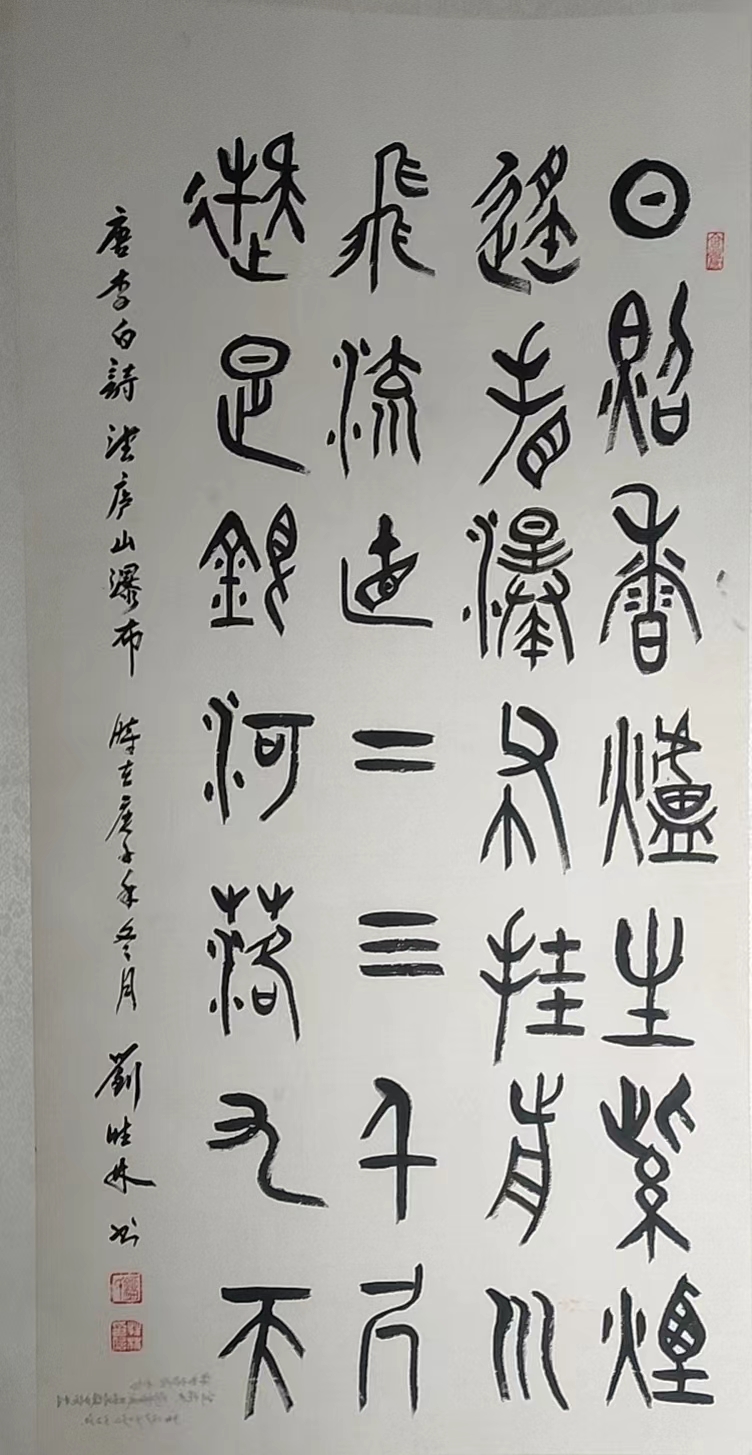 日照香爐生紫煙
遙看瀑布挂前川
飛流直下三千尺
疑是銀河落九天
唐李白詩 望庐山瀑布 時在庚子年冬月 劉林书